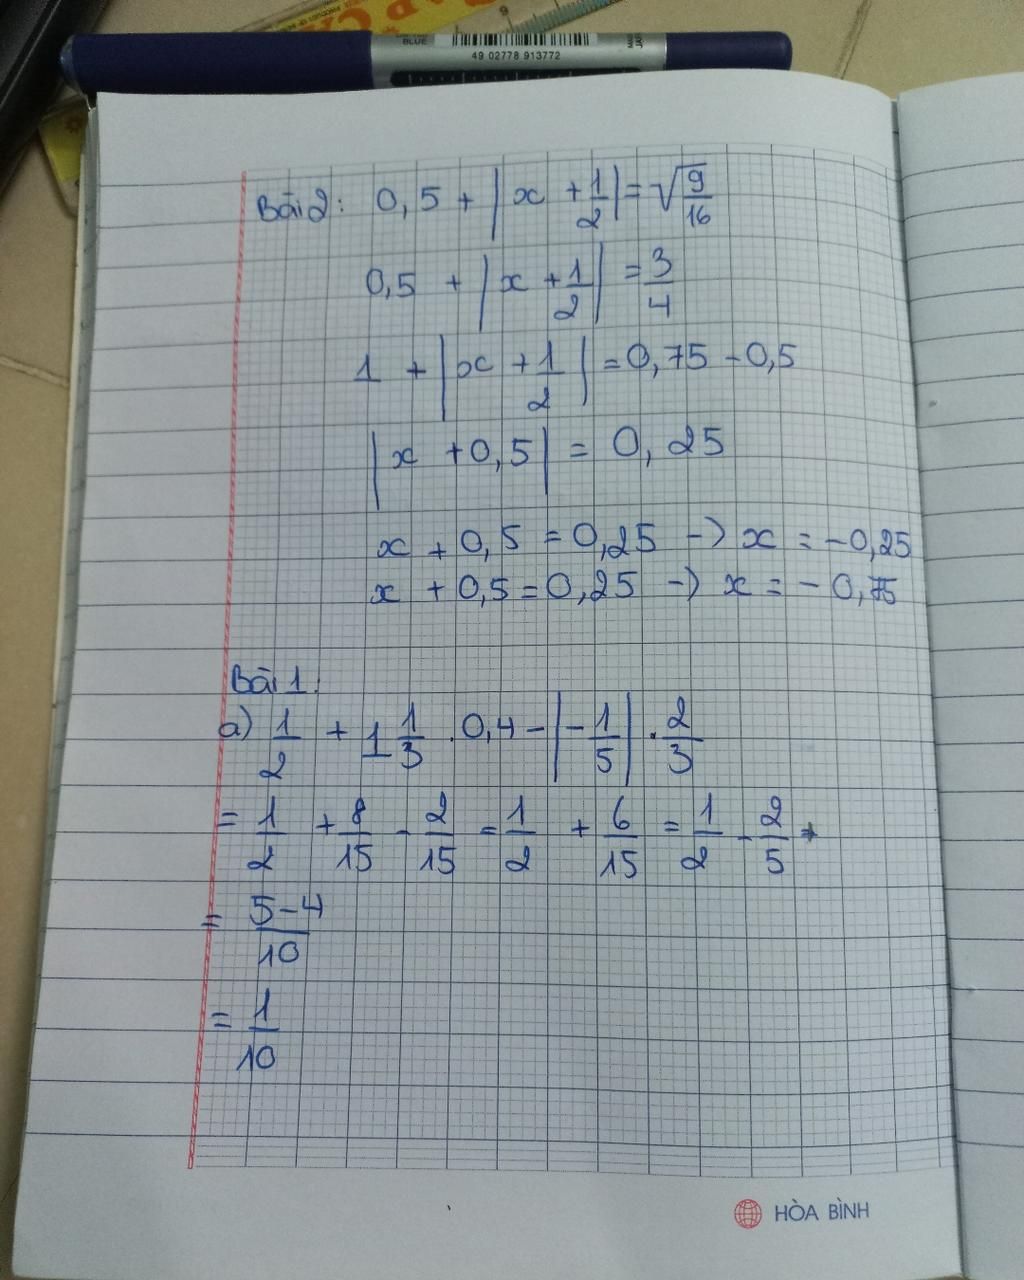 BLUE
49 02778 913772
Bài 2: 0,5 + |x + 1/2| = √(9/16)
0,5 + |x + 1/2| = 3/4
1 + |x + 1/2| = 0,75 - 0,5
|x + 0,5| = 0,25
x + 0,5 = 0,25 -> x = -0,25
x + 0,5 = 0,25 -> x = -0,75
Bài 1:
a) 1/2 + 1 1/3 . 0,4 - |-1/5| . 2/3
= 1/2 + 8/15 - 2/15 = 1/2 + 6/15 = 1/2 - 2/5
= (5-4)/10
= 1/10
HÒA BÌNH